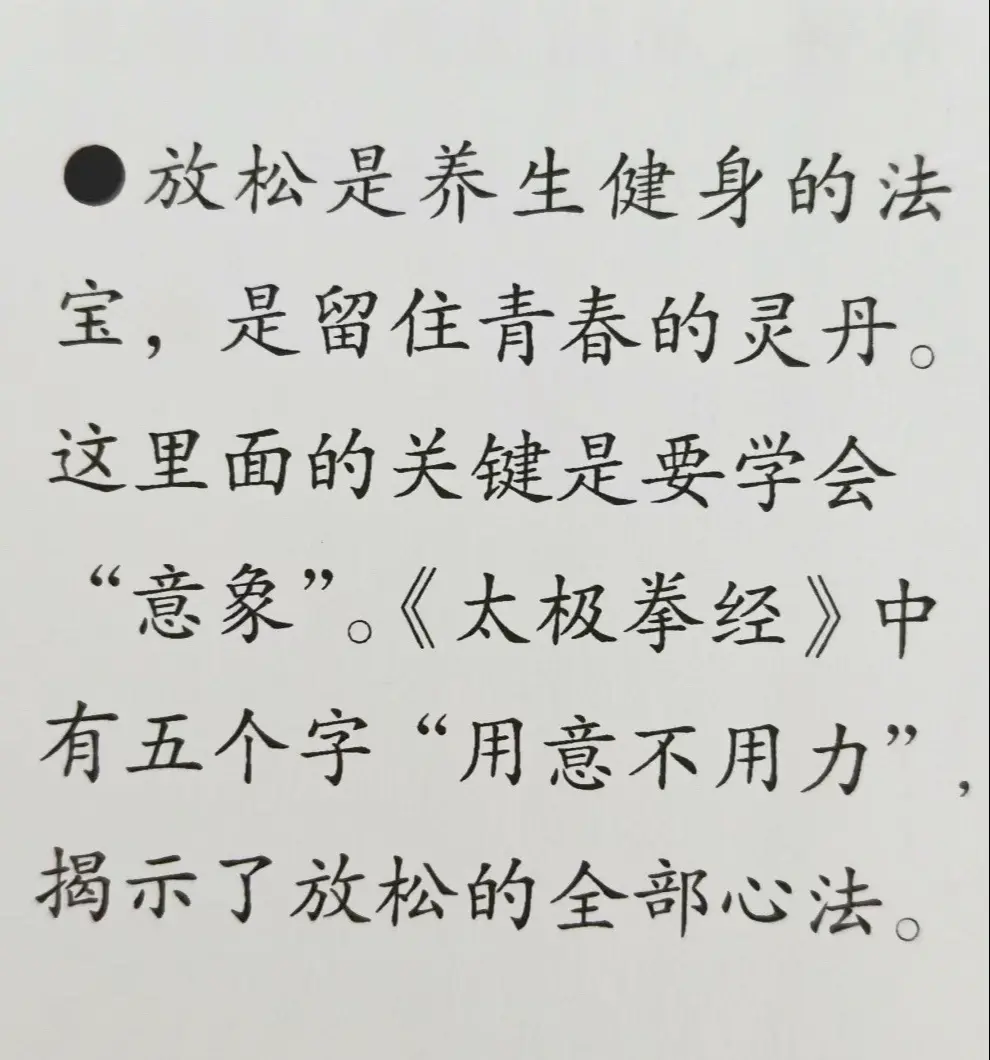 ●放松是养生健身的法
宝，是留住青春的灵丹。
这里面的关键是要学会
“意象”。《太极拳经》中
有五个字“用意不用力”，
揭示了放松的全部心法。